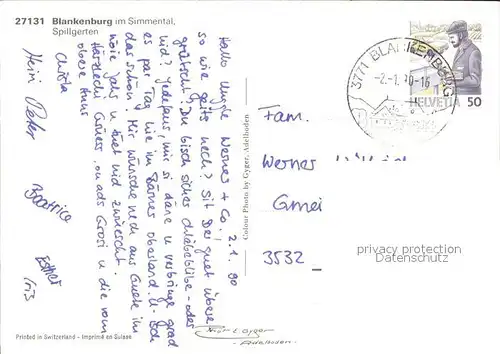 27131 Blankenburg im Simmental,
Spillgerten
2.1.90
Hallo Ungle Werner + Co.!
so wie geits nech? Sit Der guet übere
grütscht? Dir bisch sicher
nid? Jedefaus, mir si dane u verbringe grad
es par Tag hie im Bärner oberland. U Ech
das schön! Mir wünsche nech aus Guete im
nöie Jahr u
Härzlechi Grüess, on ads Grosi u die vom
obere Huus
Christa
Heini Peter
Beatrice
Esther
Iris
Colour Photo by Gyger, Adelboden
3771 BLANKENBURG
-2.-1.90-16
HELVETIA 50
Fam.
Werner
Gmei
3532
privacy protection
Datenschutz
Printed in Switzerland - Imprimé en Suisse
Gyger
- Adelboden -